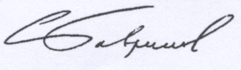 СГаврилов